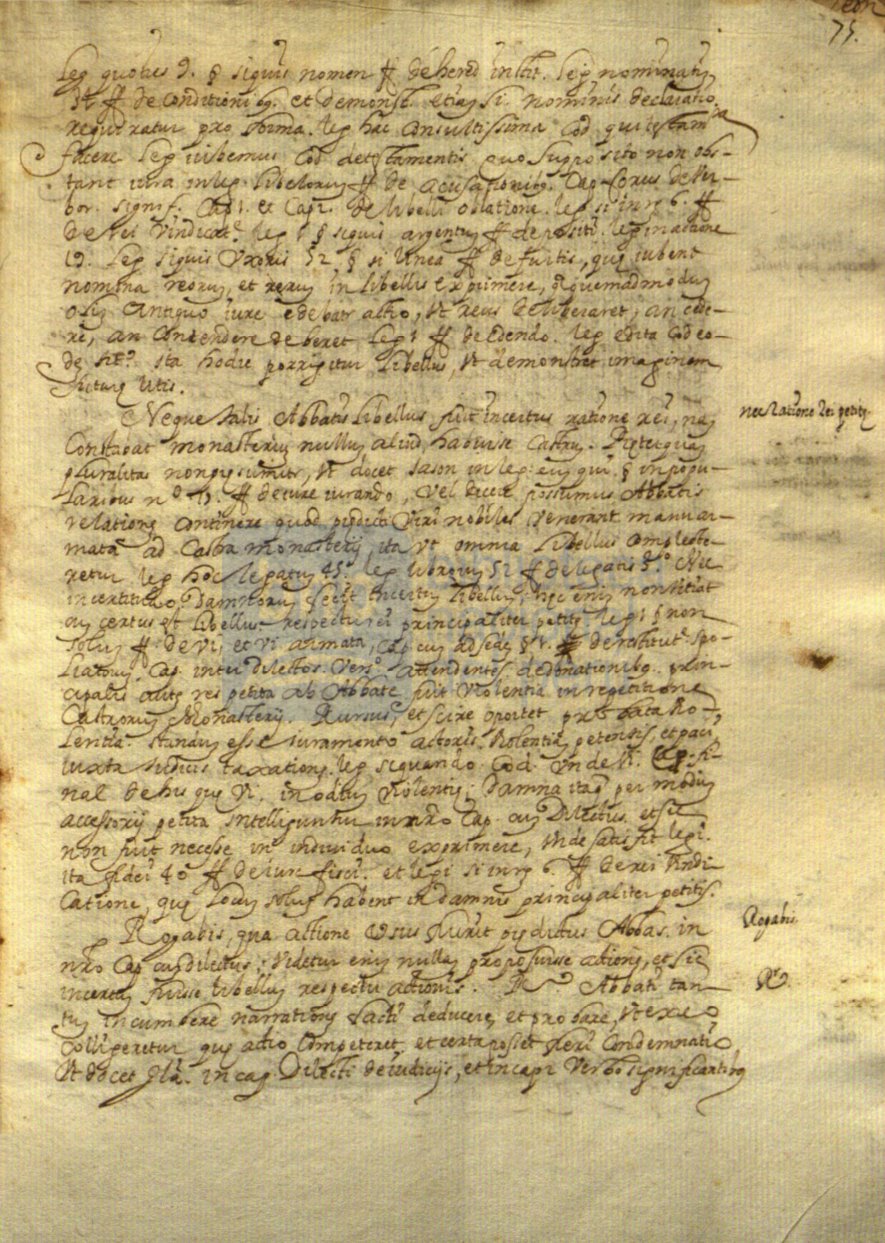 75.
Leg quoties 9. § siquis nomen ff de hered instit. Leg nominatim
34 ff de Conditionibq. et demonst. etiam si nominis declaratio
requiratur pro forma. leg hac Consultissima Cod qui testam
facere leg iubemus Cod de testamentis, quo supposito non obs-
tant iura in leg libelorum ff de acusationibq. Cap forus de Ver-
bor. signif. Cap 1. et Cap 2. de libelli oblatione. leg si in rem 6. ff
de Rei Vindicat. leg 1 § siquis argentum ff depositi. leg in actione
19. Leg siquis Uxoris 52. § si linea ff de furtis, que iubent
nomina reorum, et rerum in libellis exprimere, quemadmodum
olim antiquo iure edebatr actio, Ut reus deliberaret, an cede-
re, an Contendere deberet Leg 1 ff de Edendo. leg edita Cod eo-
de tit. ita hodie porrigitur libellus, Ut demonstret imaginem
futurę litis.
Neque talis Abbatis Libellus fuit incertus ratione rei, nam
nec ratione rei petitę
Constabat monasterium nullum aliud habuisse Castrum. Pręterquam
pluralitas non pręsumitr, Ut docet Iason in leg eum qui. § in popu-
laribus nº 19. ff de iure iurando, Vel dicere possumus Abbatis
relationem Continere quod prędicti Viri nobiles Venerant manu ar-
mata ad Castra monasterij, ita Ut omnia libellus Complecte-
retur leg hoc legatum 45. leg librorum 52 ff de legatis 3º. Nec
incertitudo damnorum fecit incertum libellum; hęc enim non Vitiat
cum certus est libellus respectu rei principaliter petitę leg 1 § non
solum ff de Vi, et Vi armata, Cap cum ad sedem § 1. de restitut. spo-
liatorum Cap. inter dilectos. Vers. attendentes. de donationibq. prin-
cipalis autem res petita ab Abbate fuit Violentia in repetitione
Castrorum Monasterij. Rursus, et scire oportet probata Vio-
lentia standum esse iuramento actoris Violentiam petentis, et pari
iuxta iudicis taxationem leg siquando Cod Unde Vi. Cap. fi-
nal de his quę Vi. in odium Violentię: Damna itaq per modum
accessorij petita intelliguntur in nro Cap cum Dilectus, et sic
non fuit necesse in individuo exprimere, Unde satis fit legi
ita fidei 40 ff de iure fisci. et legi si in rem 6. ff de rei Vindi
catione, quę locum solum habent in damnis principaliter petitis.
Rogabis, qua actione Usus fuerit prędictus Abbas in
Rogabis
nro Cap cum dilectus: Videtur enim nullam proposuisse actionem, et sic
incertum fuisse libellum respectu actionis. Rº Abbati tan-
Rº.
tum incumbere narrationem facti deducere, et probare, Ut ex eo
Colligeretur quę actio Competeret et certa posset fieri Condemnatio
Ut docet Gla. in cap Dilecti de iudicijs, et in cap 1 Verbo significantibq